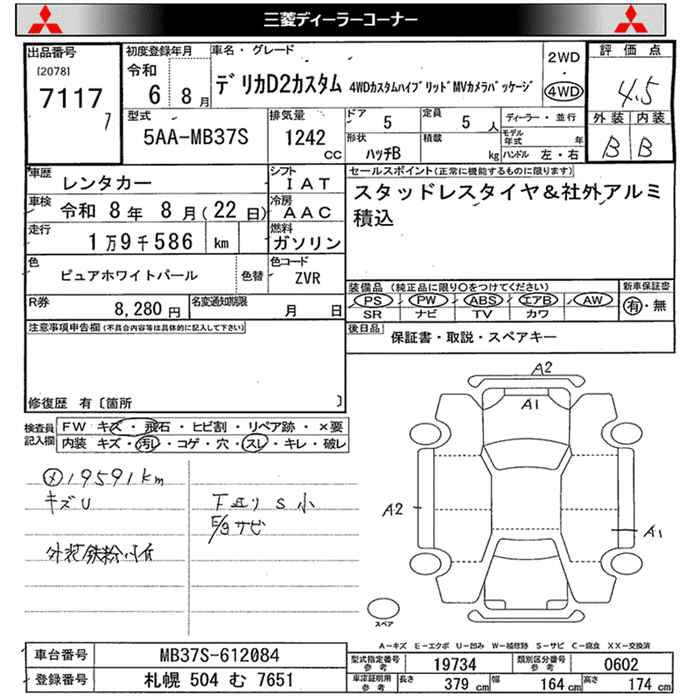 三菱ディーラーコーナー
出品番号
[2078]
7117
7
初度登録年月
令和
6 8月
車名・グレード
デリカD2カスタム 4WDカスタムハイブリッドMVカメラパッケージ
2WD
・
4WD
評価点
4.5
外装 内装
B B
型式
5AA-MB37S
排気量
1242
CC
ドア
5
定員
5 人
形状
ハッチB
積載
kg
ディーラー・並行
モデル年式 年
ハンドル 左・右
車歴
レンタカー
シフト
IAT
車検
令和 8年 8月(22日)
冷房
AAC
走行
1万9千586 km
燃料
ガソリン
色
ピュアホワイトパール
色替
色コード
ZVR
R券
8,280円
名変通知期限
月 日
セールスポイント(正常に機能するものに限ります)
スタッドレスタイヤ&社外アルミ
積込
装備品(純正品に限り○をつけてください)
PS PW ABS エアB AW
SR ナビ TV カワ
新車保証書
有・無
後日品
保証書・取説・スペアキー
注意事項申告欄(不具合内容等は具体的に記入して下さい)
修復歴 有〔箇所 〕
検査員
記入欄
FW キズ・飛石・ヒビ割・リペア跡・×要
内装 キズ・汚レ・コゲ・穴・スレ・キレ・破レ
メ 19591km
キズU
下廻り S 小
E/g サビ
A2
A1
A2
A1
スペア
A-キズ E-エクボ U-凹み W-補修跡 S-サビ C-腐食 XX-交換済
車台番号
MB37S-612084
登録番号
札幌 504 む 7651
型式指定番号
参考
19734
類別区分番号
参考
0602
車庫証明用
参考
長さ 379 cm
幅 164 cm
高さ 174 cm